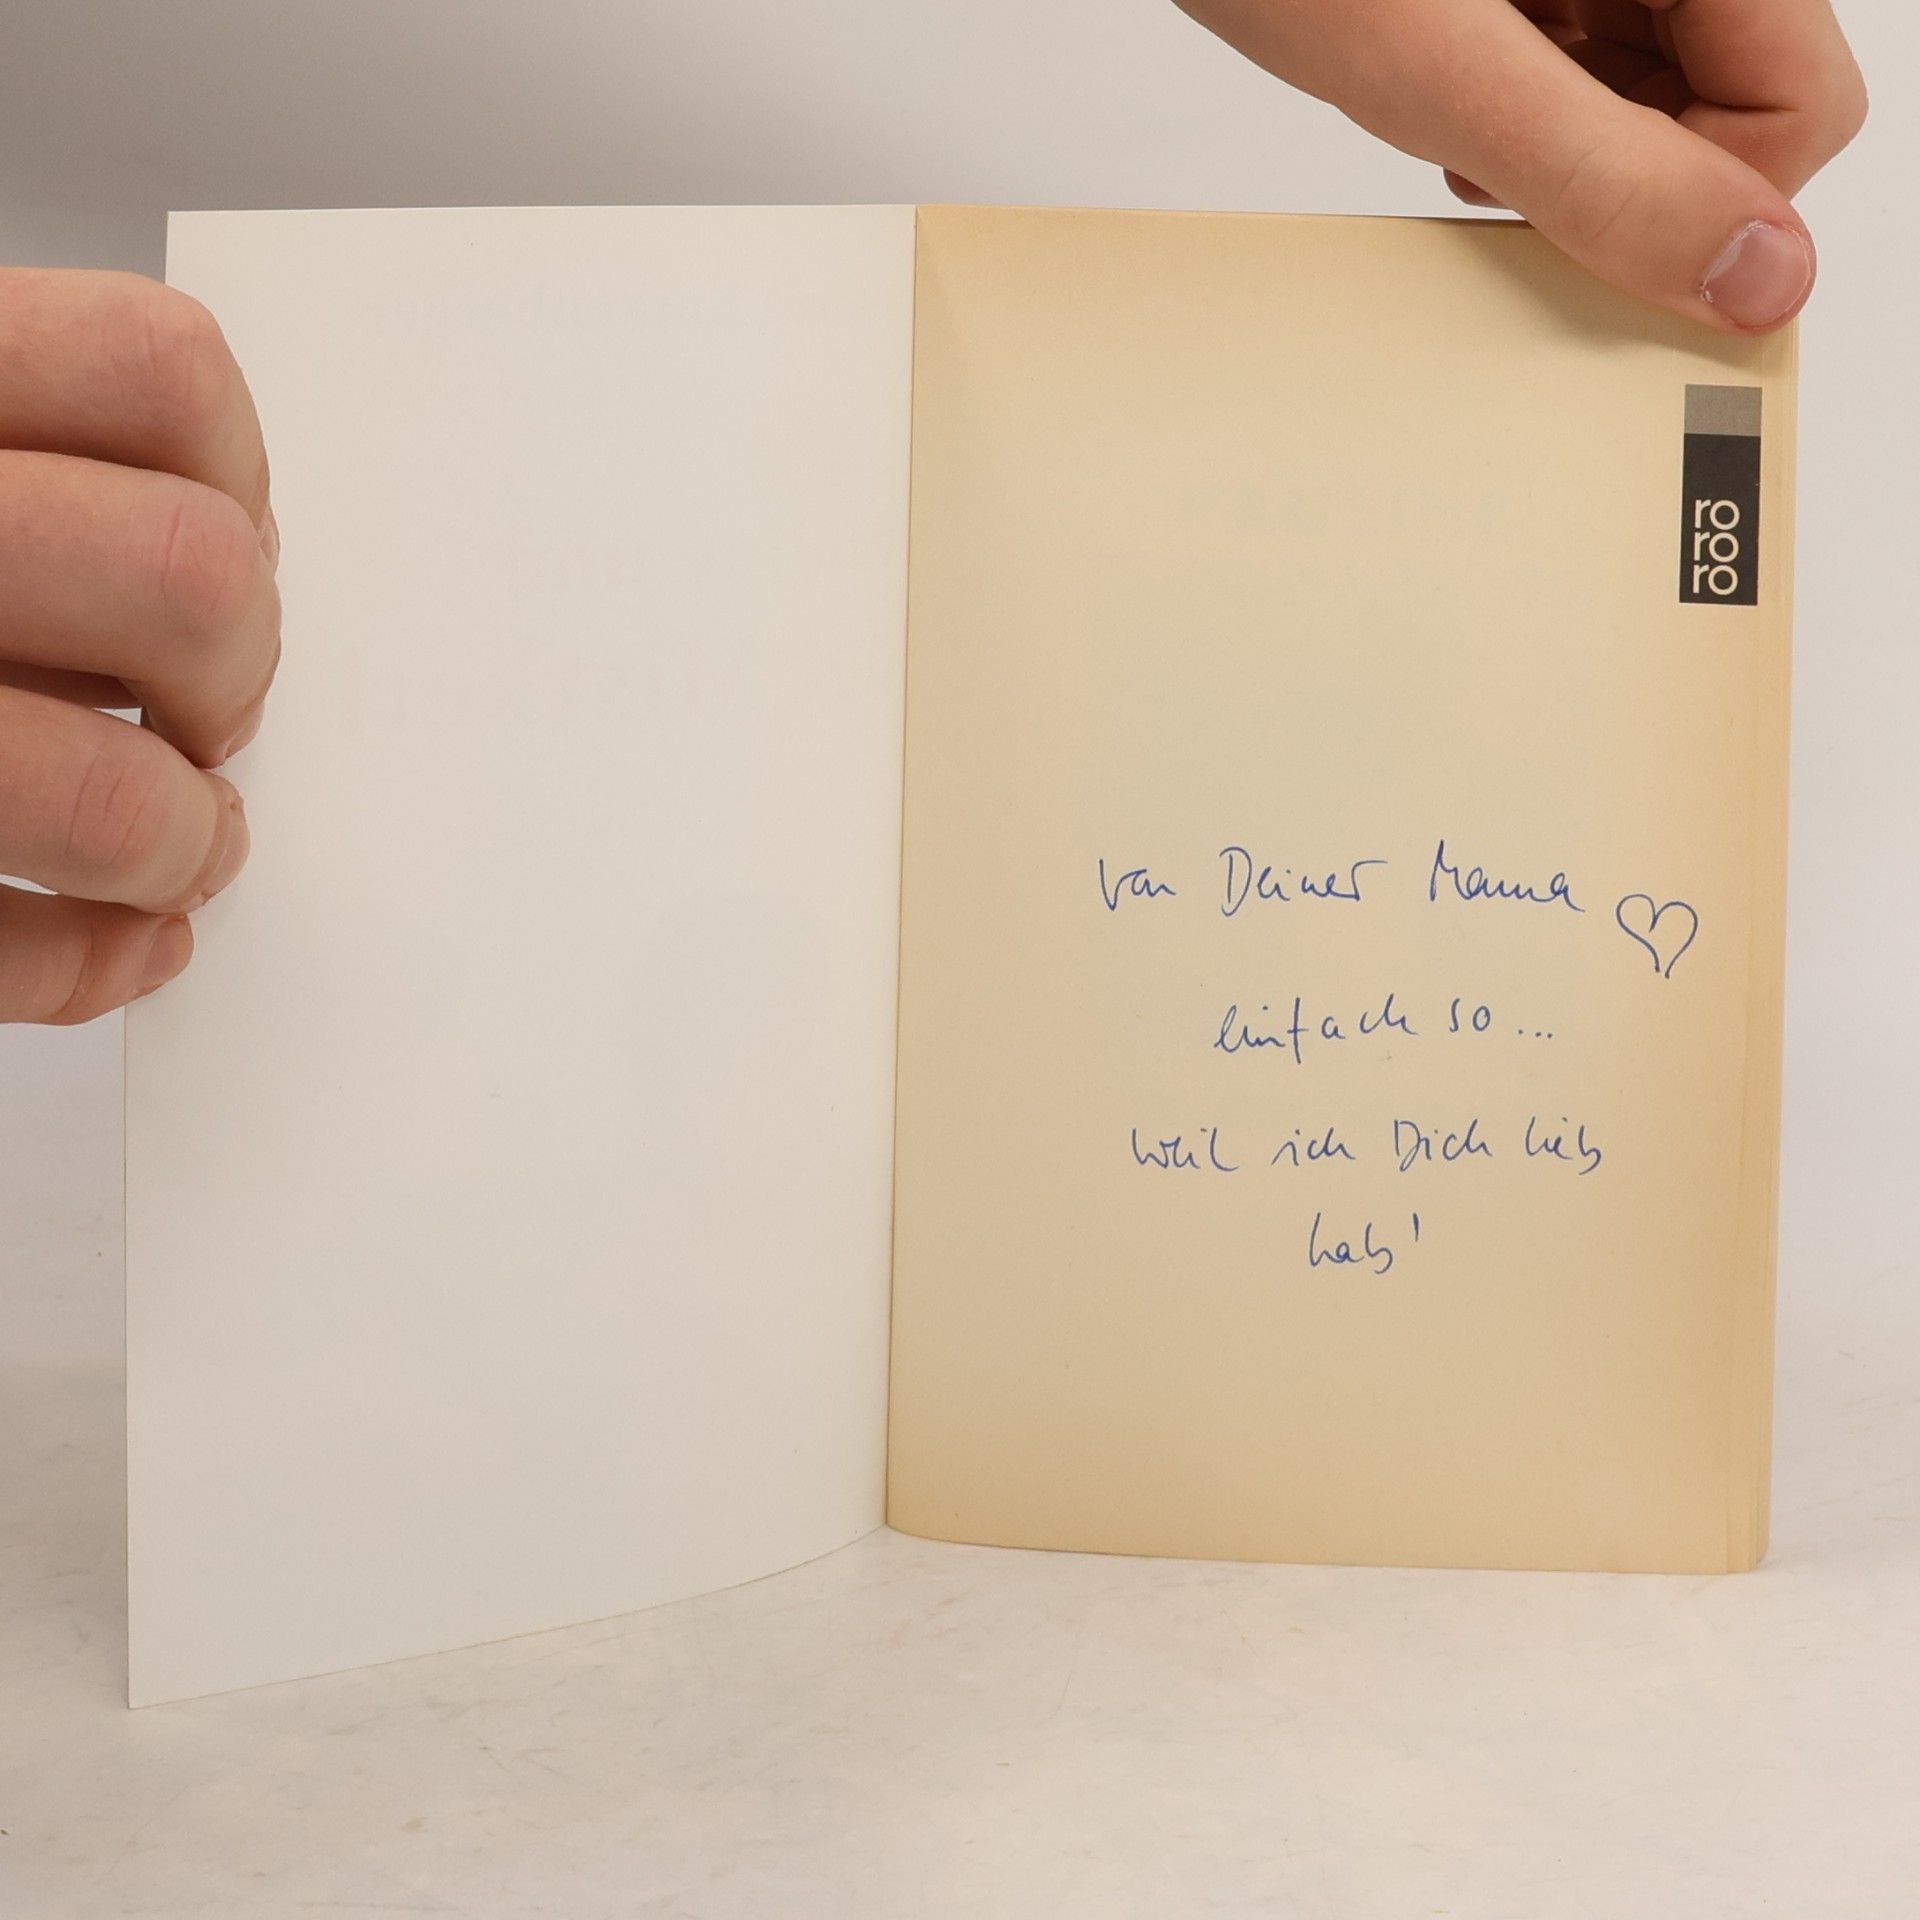 ro
ro
ro
von Deiner Mama
einfach so...
weil ich Dich lieb
hab!